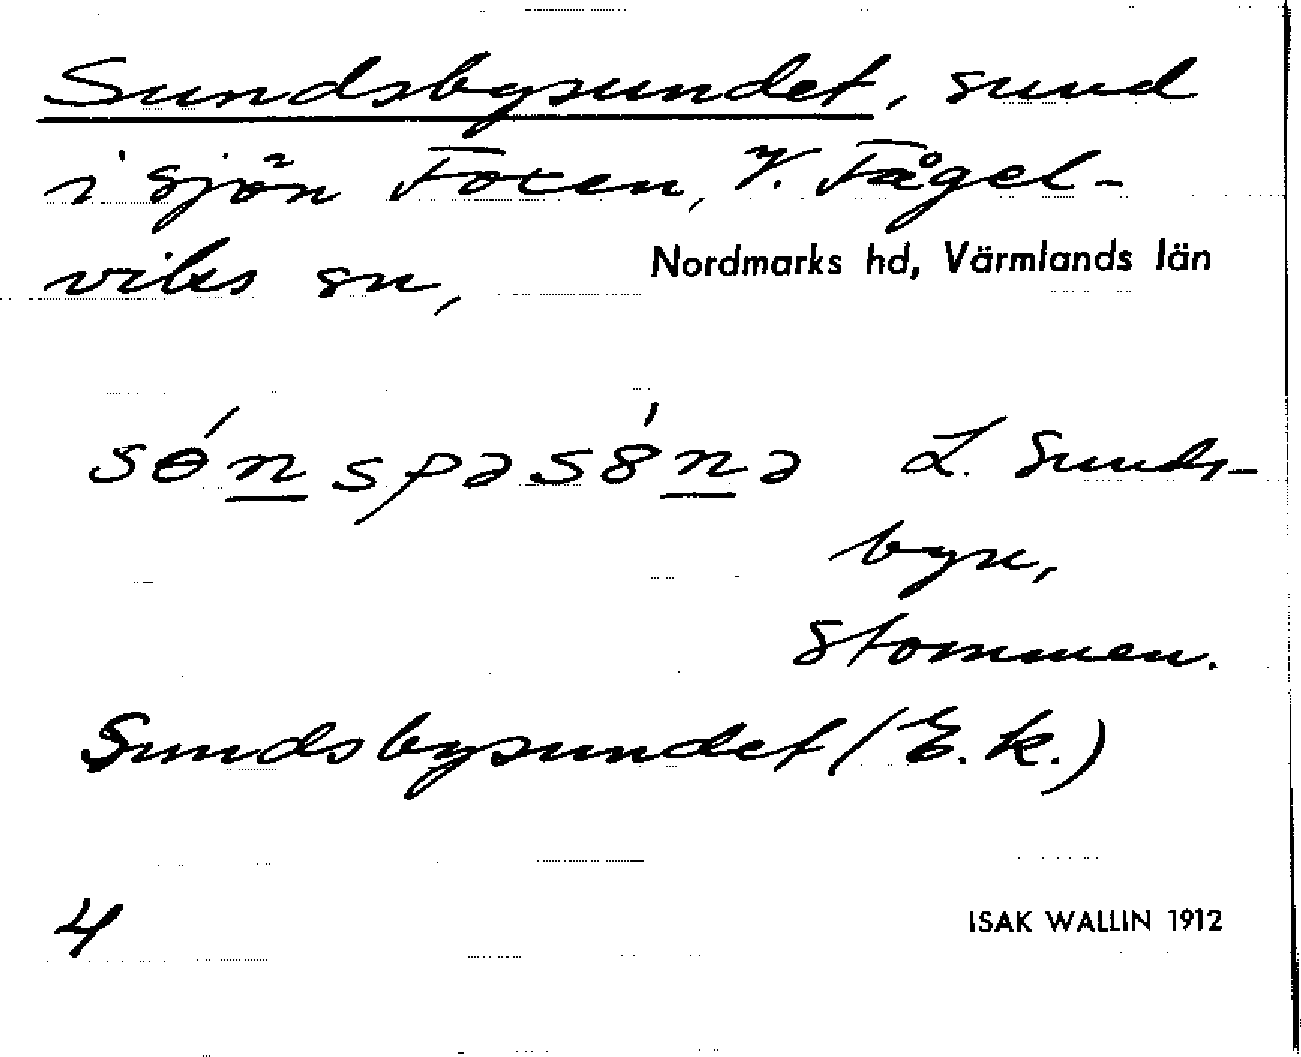 Sundsbysundet, sund
i sjön Foxen, V. Fågel-
viks sn, Nordmarks hd, Värmlands län
sɵ́n̲spəsȣ́n̲ə L. Sunds-
byn,
Stommen.
Sundsbysundet (E.k.)
4 ISAK WALLIN 1912